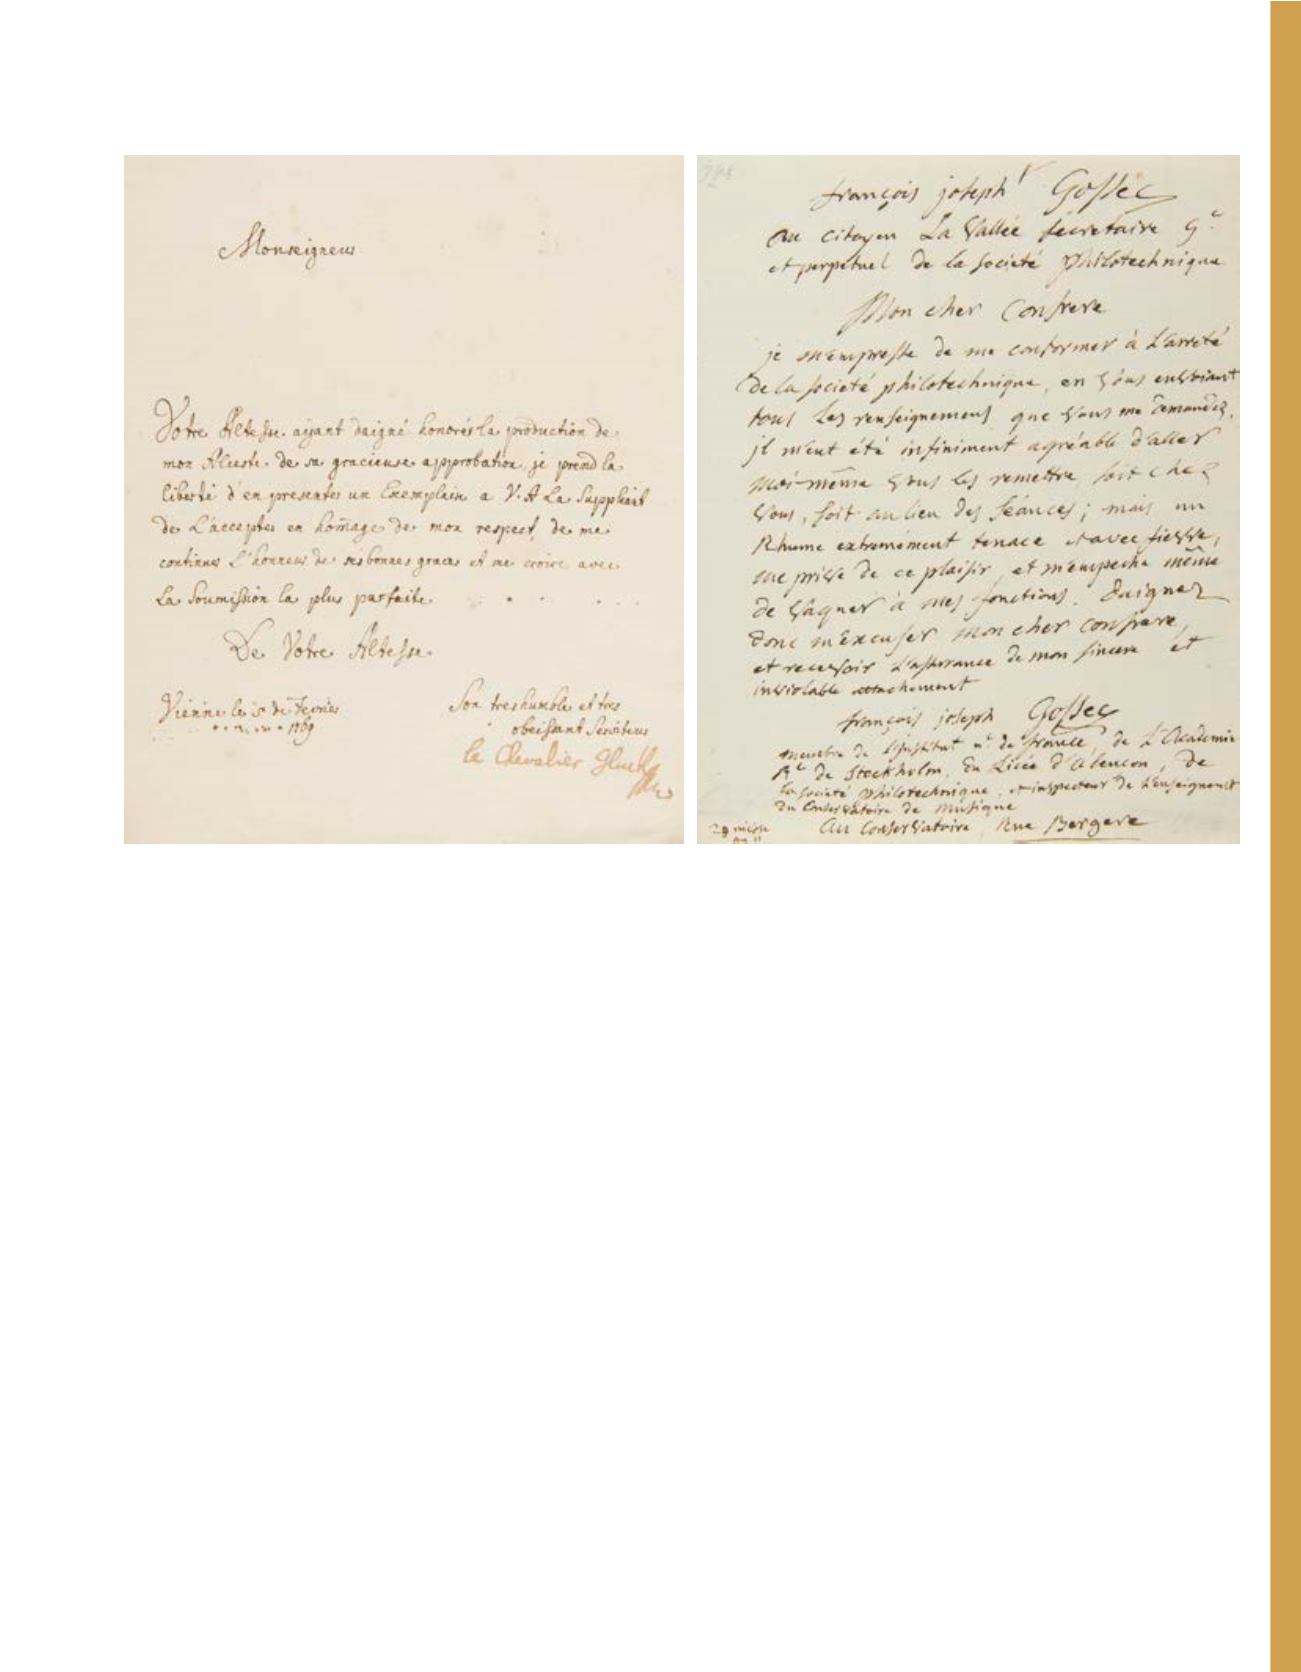 Monseigneur
Votre Altesse ayant daigné honorér la production de
mon Alceste de sa gracieuse approbation, je prend la
liberté d'en presenter un Exemplaire a V. A La Suppliant
de L'accepter en hom̄age de mon respect, de me
continuer L'honneur de ses bonnes graces et me croire avec
La Soumission la plus parfaite
De Votre Altesse
Vienne le de Fevrier
1769
Son tres humble et tres
obeissant Serviteur
le Chevalier Gluck
françois joseph Gossec
au citoyen La Vallée sécretaire G.
et perpétuel de la Societé philotechnique
Mon cher Confrere
je m'empresse de me conformer à L'arreté
de la societé philotechnique, en vous envoiant
tous les renseignemens que vous me demandéz.
il m'eut été infiniment agréable d'aller
moi-même vous les remettre, soit chez
vous, soit au lieu des séances; mais un
Rhume extremément tenace et avec fievre,
me prive de ce plaisir, et m'empeche même
de vaquer à mes fonctions. Daignez
donc m'Excuser mon cher confrere,
et recevoir L'assurance de mon sincere et
inviolable attachement
françois joseph Gossec
membre de l'institut n.l de france, de L'Academie
R.le de Stockholm, du Licée d'alencon, de
la societé philotechnique, et inspecteur de l'enseignemt
du Conservatoire de Musique
au Conservatoire, Rue Bergere
29